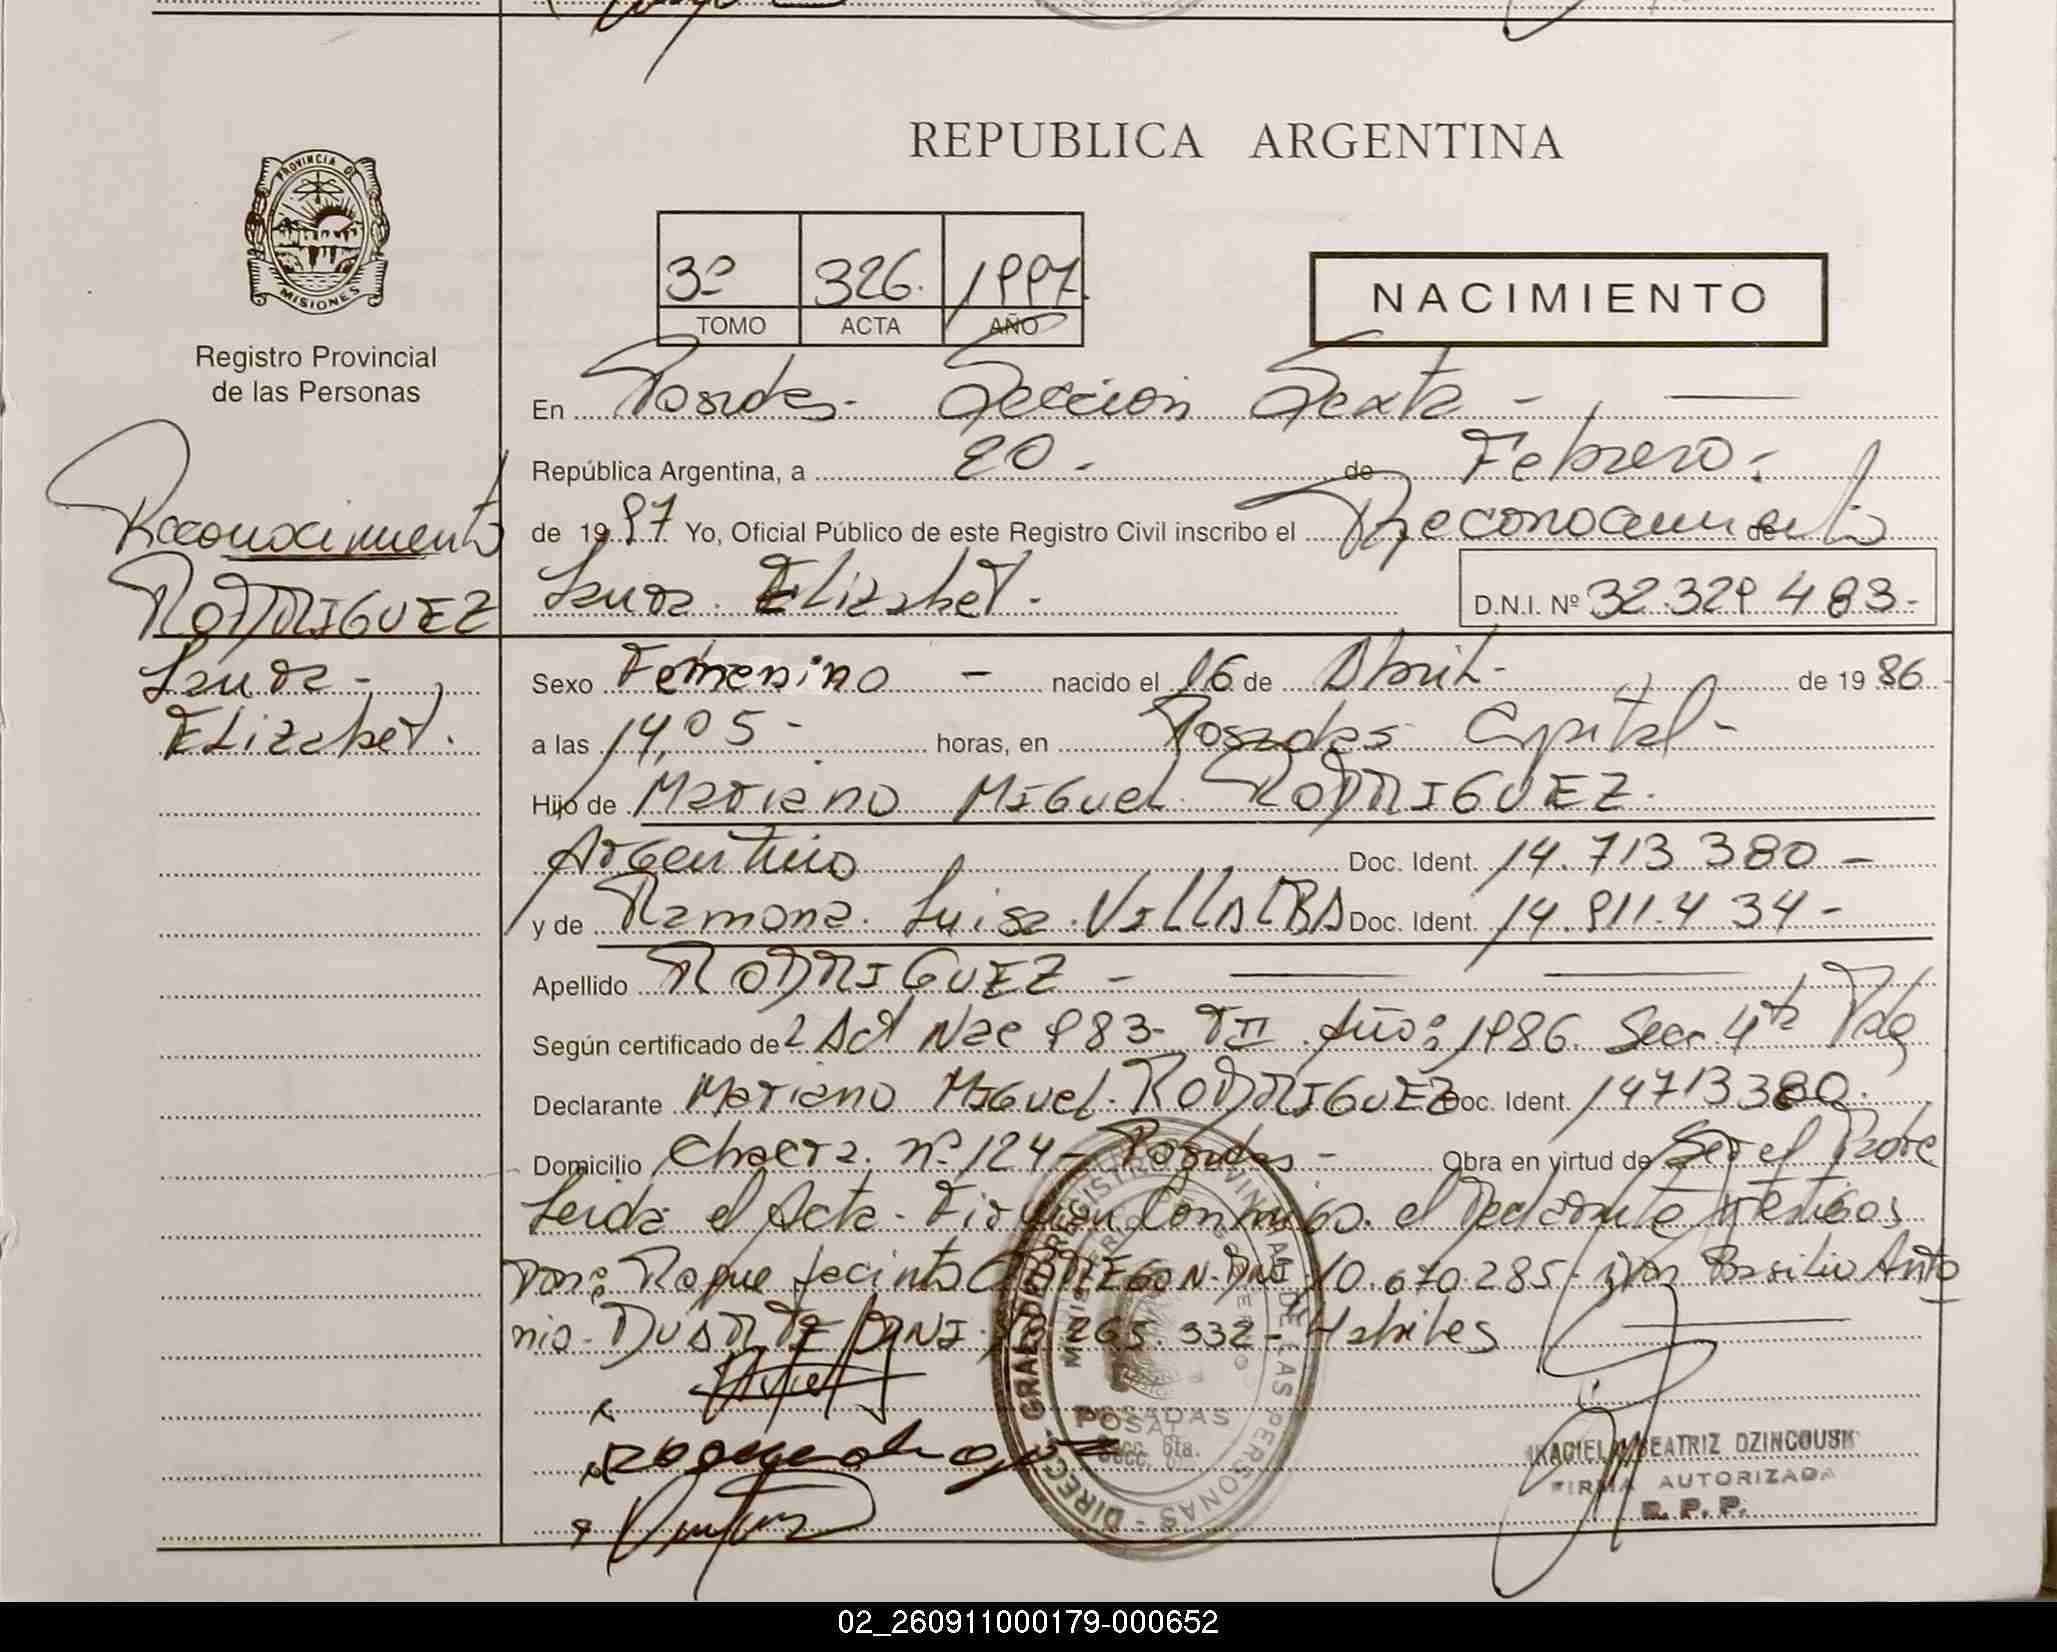 REPUBLICA ARGENTINA
PROVINCIA DE
MISIONES
Registro Provincial
de las Personas
3º 326. 1997.
TOMO ACTA AÑO
NACIMIENTO
En Posadas - Sección Sexta -
República Argentina, a 20 - de Febrero -
de 1997 Yo, Oficial Público de este Registro Civil inscribo el Reconocimiento de
Laura Elizabet. -
D.N.I. Nº 32.329 483-
Reconocimiento
RODRIGUEZ
Laura -
Elizabet.
Sexo Femenino - nacido el 16 de Abril - de 1986 -
a las 14,05 - horas, en Posadas Capital -
Hijo de Mariano Miguel RODRIGUEZ.
Argentino Doc. Ident. 14.713 380 -
y de Ramona Luisa VILLALBA Doc. Ident. 14.911.434 -
Apellido RODRIGUEZ -
Según certificado de Act Nac 983 - T II Año: 1986. Secc. 4ta Pdas
Declarante Mariano Miguel RODRIGUEZ Doc. Ident. 14713380.
Domicilio Chacra nº 124 - Posadas - Obra en virtud de Ser el Padre
Leida el Acta - Firman Conmigo el Declarante y testigos
Don: Roque Jacinto OBREGON. DNI. 10.670.285 - Don Basilio Anto
nio - DUARTE DNI. 265.332 - Habiles
DIREC. GRAL. DEL REGISTRO PROVINCIAL DE LAS PERSONAS
MINISTERIO DE GOBIERNO
POSADAS
Secc. 6ta.
BEATRIZ DZINCOUSK
FIRMA AUTORIZADA
R. P. P.
02_260911000179-000652